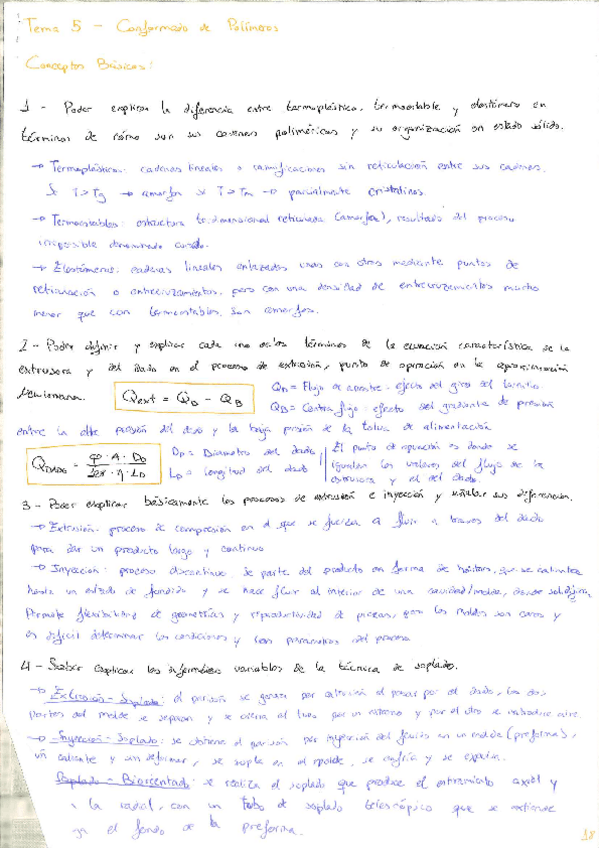 Tema 5 - Conformado de Polímeros
Conceptos Básicos:
1 - Poder explicar la diferencia entre termoplástico, termoestable y elastómero en
términos de cómo son sus cadenas poliméricas y su organización en estado sólido.
→ Termoplásticos: cadenas lineales o ramificaciones sin reticulación entre sus cadenas.
Si T > Tg → amorfos si T > Tm → parcialmente cristalinos.
→ Termoestables: estructura tridimensional reticulada (amorfa), resultado del proceso
irreversible denominado curado.
→ Elastómeros: cadenas lineales enlazadas unas con otras mediante puntos de
reticulación o entrecruzamientos, pero con una densidad de entrecruzamientos mucho
menor que con termoestables. Son amorfos.
2 - Poder definir y explicar cada uno de los términos de la ecuación característica de la
extrusora y del dado en el proceso de extrusión, punto de operación en la aproximación
Newtoniana. Qext = QD - QB
QD = Flujo de arrastre: efecto del giro del tornillo
QB = Contra flujo: efecto del gradiente de presión
entre la alta presión del dado y la baja presión de la tolva de alimentación
DD = Diámetro del dado
LD = Longitud del dado
El punto de operación es donde se
igualan los valores del flujo de la
extrusora y el del dado.
3 - Poder explicar básicamente los procesos de extrusión e inyección y señalar sus diferencias.
→ Extrusión: proceso de compresión en el que se fuerza a fluir a través del dado
para dar un producto largo y continuo
→ Inyección: proceso discontinuo. Se parte del producto en forma de que se calienta
hasta un estado de fundido y se hace fluir al interior de una cavidad/molde, donde solidifica.
Permite flexibilidad de geometrías y reproductividad de piezas, pero los moldes son caros y
es difícil determinar las condiciones y parámetros del proceso
4 - Saber explicar las diferentes variables de la técnica de soplado.
→ Extrusión - Soplado: el parisón se genera por extrusión al pasar por el dado, las dos
partes del molde se separan y se cierra el tubo por un extremo y por el otro se introduce aire.
→ Inyección - Soplado: se obtiene el parisón por inyección del fluido en un molde (preforma),
caliente y sin deformar, se sopla en el molde, se enfría y se expulsa.
Soplado - Biorientado: se realiza el soplado que produce el estiramiento axial y
la radial, con un tubo de soplado telescópico que se extiende
el fondo de la preforma.
18